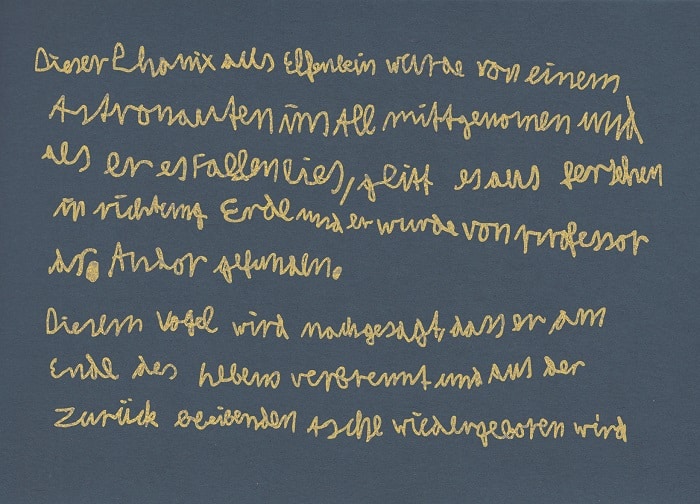 Dieser Phonix aus Elfenbein wurde von einem
Astronauten ins All mittgenomen und
als er es Fallen lies, glitt es aus fersehen
in richtung Erde und er wurde von professor
dr. Andor gefunden.
Diesem Vogel wird nachgesagt, dass er am
Ende des lebens verbrennt und aus der
Zurück beibenden asche wiedergeboren wird